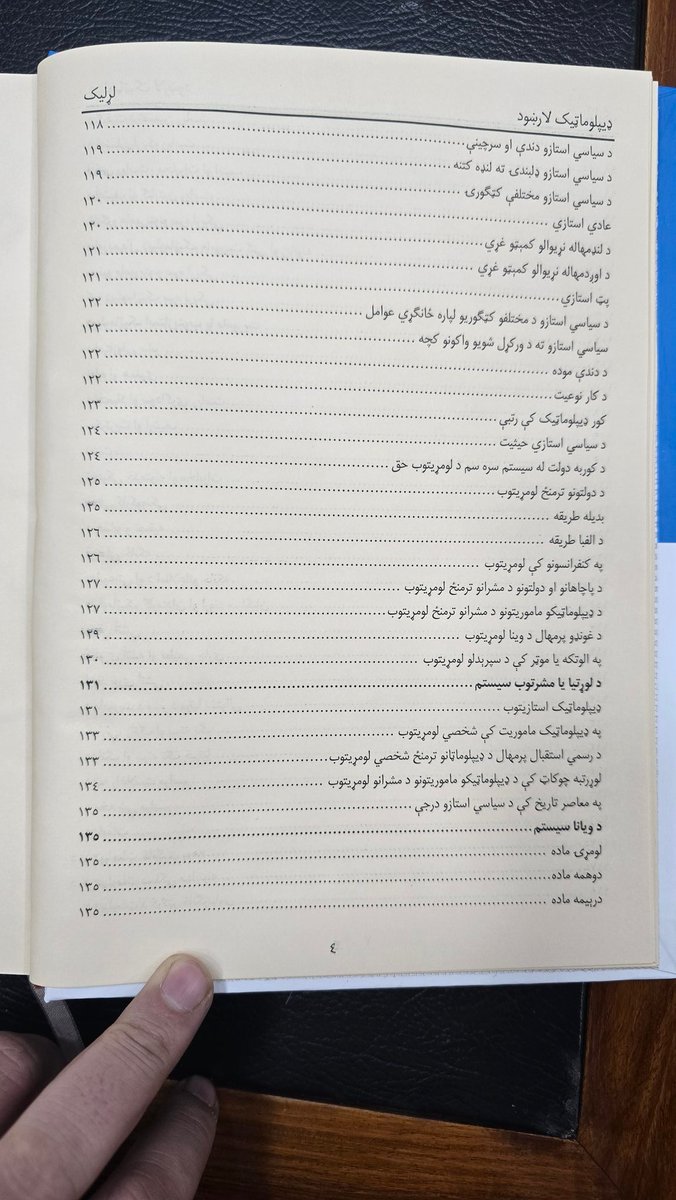 ډیپلوماټیک لارښود لړلیک
د سیاسي استازو دندې او سرچینې ١١٨
د سیاسي استازو ډلبندۍ ته لنډه کتنه ١١٩
د سیاسي استازو مختلفې کټګورۍ ١١٩
عادي استازي ١٢٠
د لنډمهاله نړیوالو کمېټو غړي ١٢٠
د اوږدمهاله نړیوالو کمېټو غړي ١٢١
پټ استازي ١٢١
د سیاسي استازو د مختلفو کټګوریو لپاره ځانګړي عوامل ١٢٢
سیاسي استازو ته د ورکړل شویو واکونو کچه ١٢٢
د دندې موده ١٢٢
د کار نوعیت ١٢٢
کور ډیپلوماټیک کې رتبې ١٢٣
د سیاسي استازي حیثیت ١٢٤
د کوربه دولت له سیستم سره سم د لومړیتوب حق ١٢٤
د دولتونو ترمنځ لومړیتوب ١٢٥
بدیله طریقه ١٢٥
د الفبا طریقه ١٢٦
په کنفرانسونو کې لومړیتوب ١٢٦
د پاچاهانو او دولتونو د مشرانو ترمنځ لومړیتوب ١٢٧
د ډیپلوماټیکو ماموریتونو د مشرانو ترمنځ لومړیتوب ١٢٧
د غونډو پرمهال د وینا لومړیتوب ١٢٩
په الوتکه یا موټر کې د سپرېدلو لومړیتوب ١٣٠
د لوړتیا یا مشرتوب سیستم ١٣١
ډیپلوماټیک استازیتوب ١٣١
په ډیپلوماټیک ماموریت کې شخصي لومړیتوب ١٣٣
د رسمي استقبال پرمهال د ډیپلوماټانو ترمنځ شخصي لومړیتوب ١٣٣
لوړرتبه چوکاټ کې د ډیپلوماټیکو ماموریتونو د مشرانو لومړیتوب ١٣٤
په معاصر تاریخ کې د سیاسي استازو درجې ١٣٥
د ویانا سیستم ١٣٥
لومړۍ ماده ١٣٥
دوهمه ماده ١٣٥
درېیمه ماده ١٣٥
٤